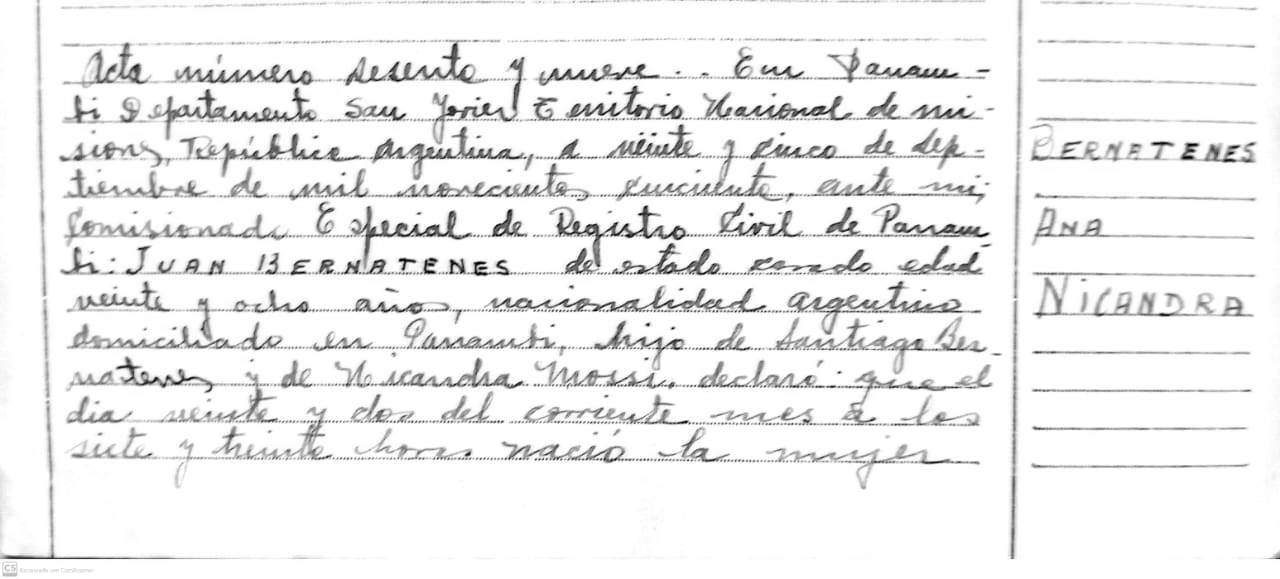 Acta número sesenta y nueve.. En Panam-
bi Departamento San Javier Territorio Nacional de mi-
siones, República Argentina, a veinte y cinco de sep-
tiembre de mil novecientos cincuenta, ante mi,
Comisionado Especial de Registro Civil de Panam-
bi: JUAN BERNATENES de estado casado edad
veinte y ocho años, nacionalidad argentino
domiciliado en Panambi, hijo de Santiago Ber-
natenes y de Nicandra Mossi. declaró: que el
dia veinte y dos del corriente mes a las
siete y treinta horas nació la mujer
BERNATENES
ANA
NICANDRA
CS Escaneado con CamScanner